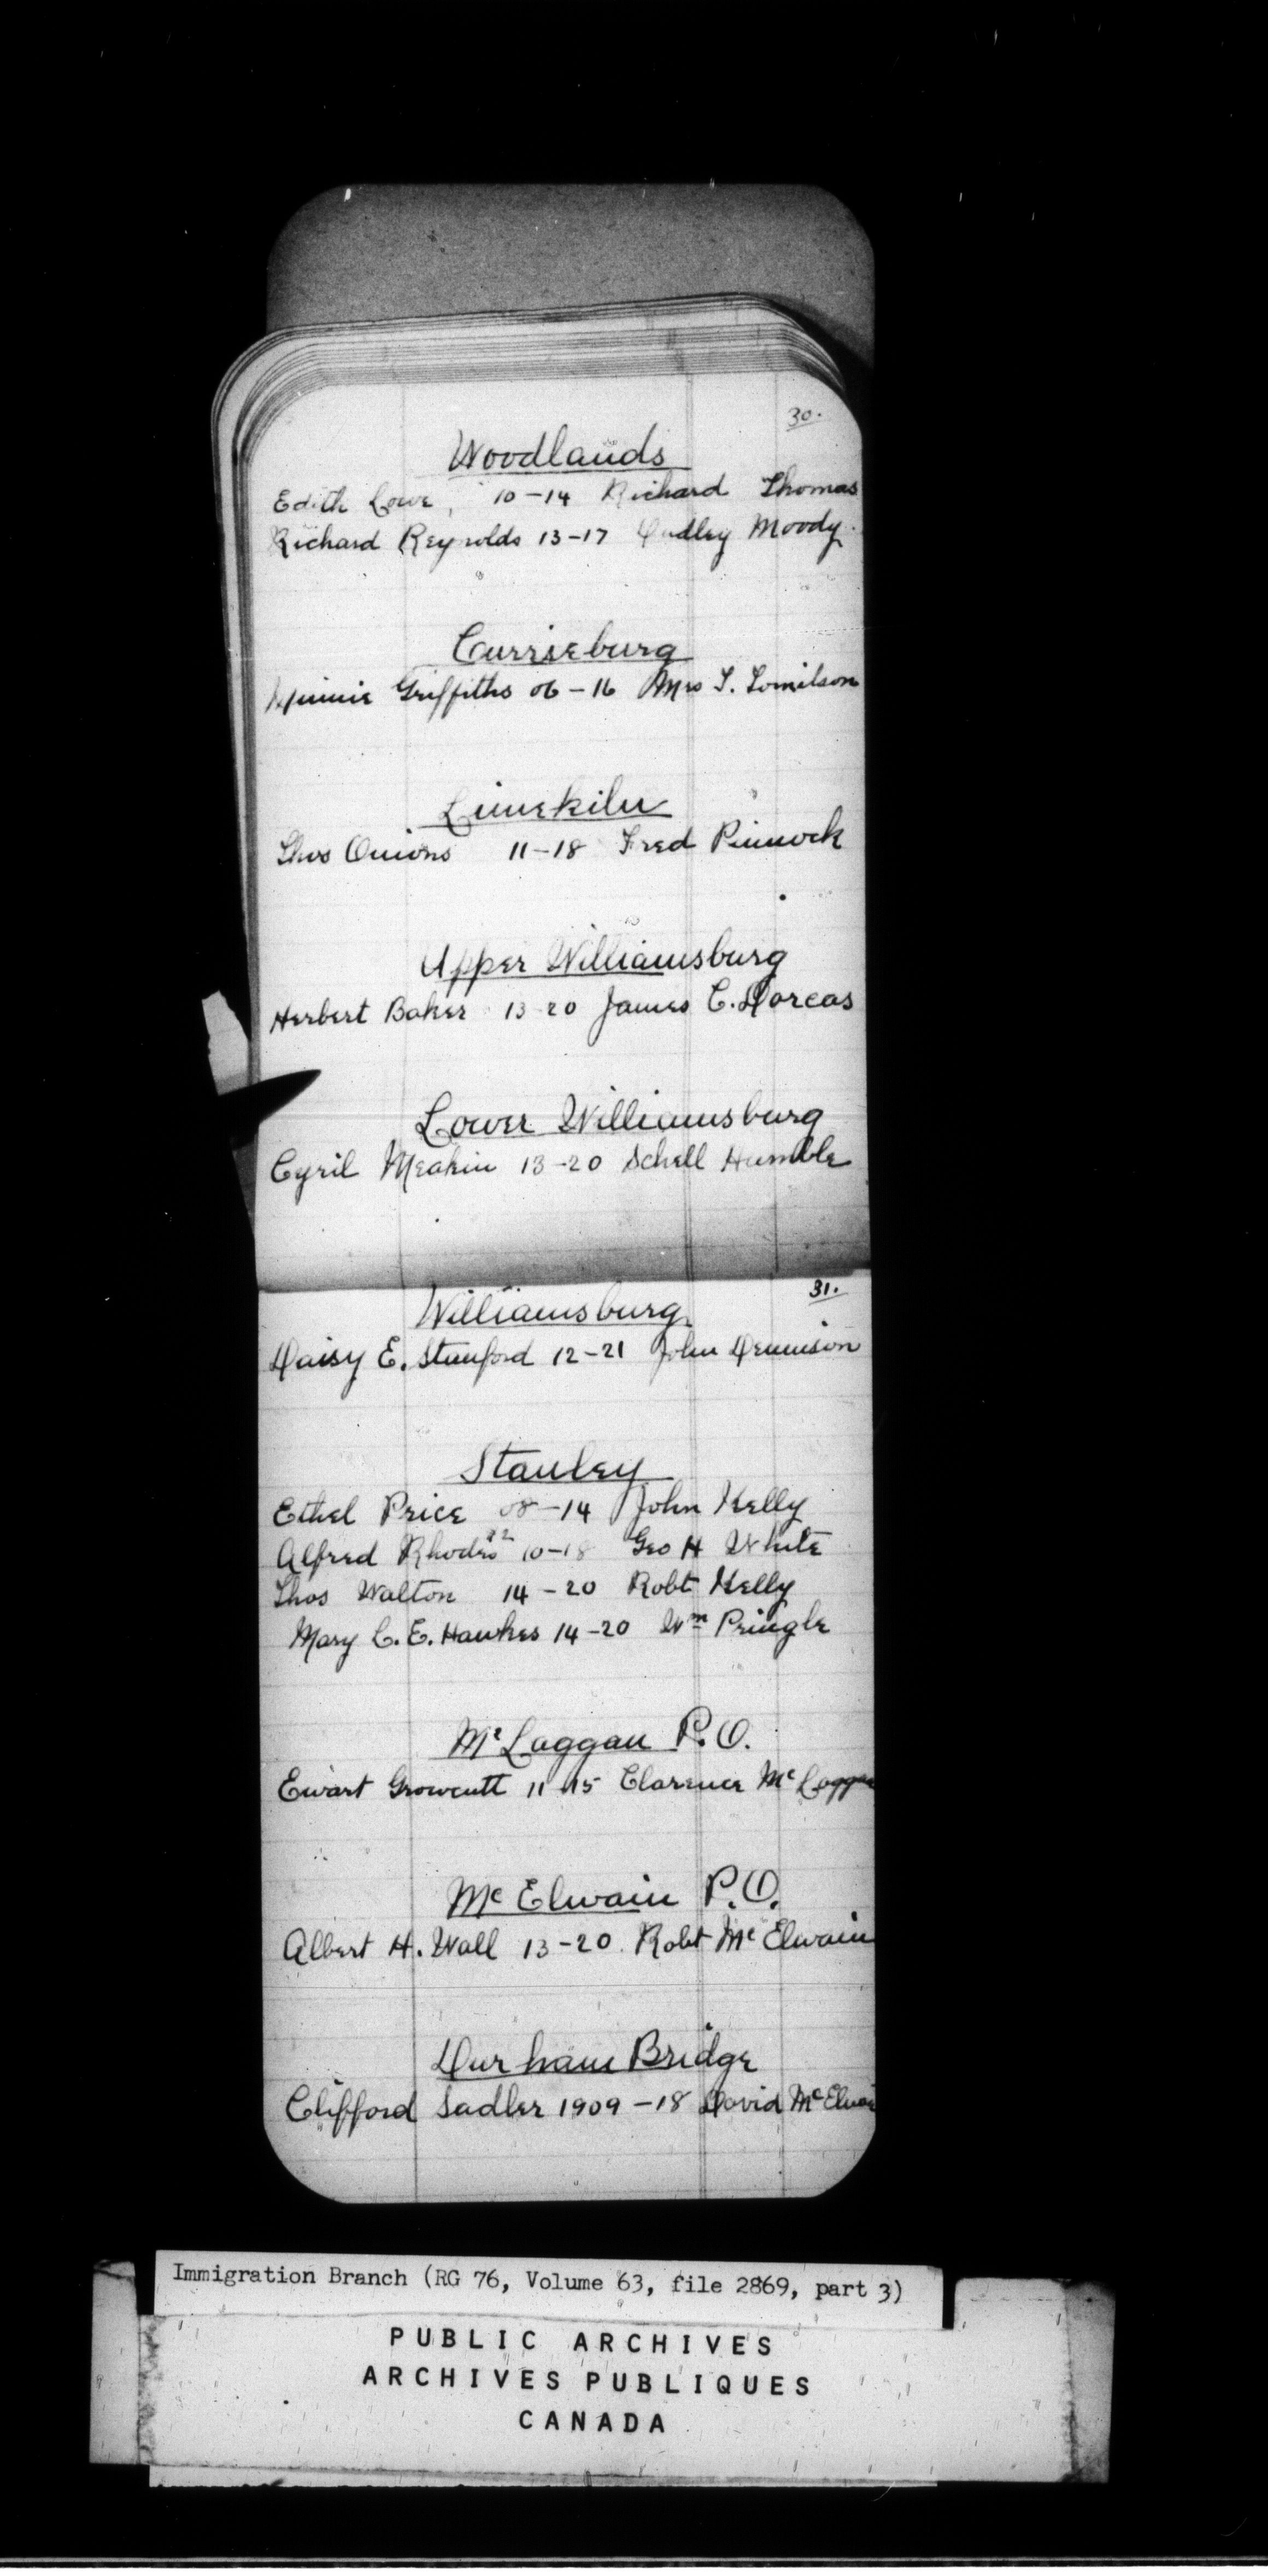 30.
Woodlands
Edith Lowe, 10-14 Richard Thomas
Richard Reynolds 13-17 Dudley Moody.
Currieburg
Minnie Griffiths 06-16 Mrs T. Tomilson
Limekiln
Thos Onions 11-18 Fred Pinnock
Upper Williamsburg
Herbert Baker 13 20 James C. Dorcas
Lower Williamsburg
Cyril Meakin 13-20 Schell Humble
31.
Williamsburg
Daisy E. Stanford 12-21 John Dennison
Stanley
Ethel Price 08-14 John Kelly
Alfred Rhodes 10-18 Geo H White
Thos Walton 14-20 Robt Kelly
Mary C. E. Hawkes 14-20 Wm Pringle
Mc Laggan P.O.
Ewart Growcutt 11-15 Clarence Mc Laggan
Mc Elwain P.O.
Albert H. Wall 13-20. Robt Mc Elwain
Durham Bridge
Clifford Sadler 1909-18 David Mc Elwai
Immigration Branch (RG 76, Volume 63, file 2869, part 3)
PUBLIC ARCHIVES
ARCHIVES PUBLIQUES
CANADA